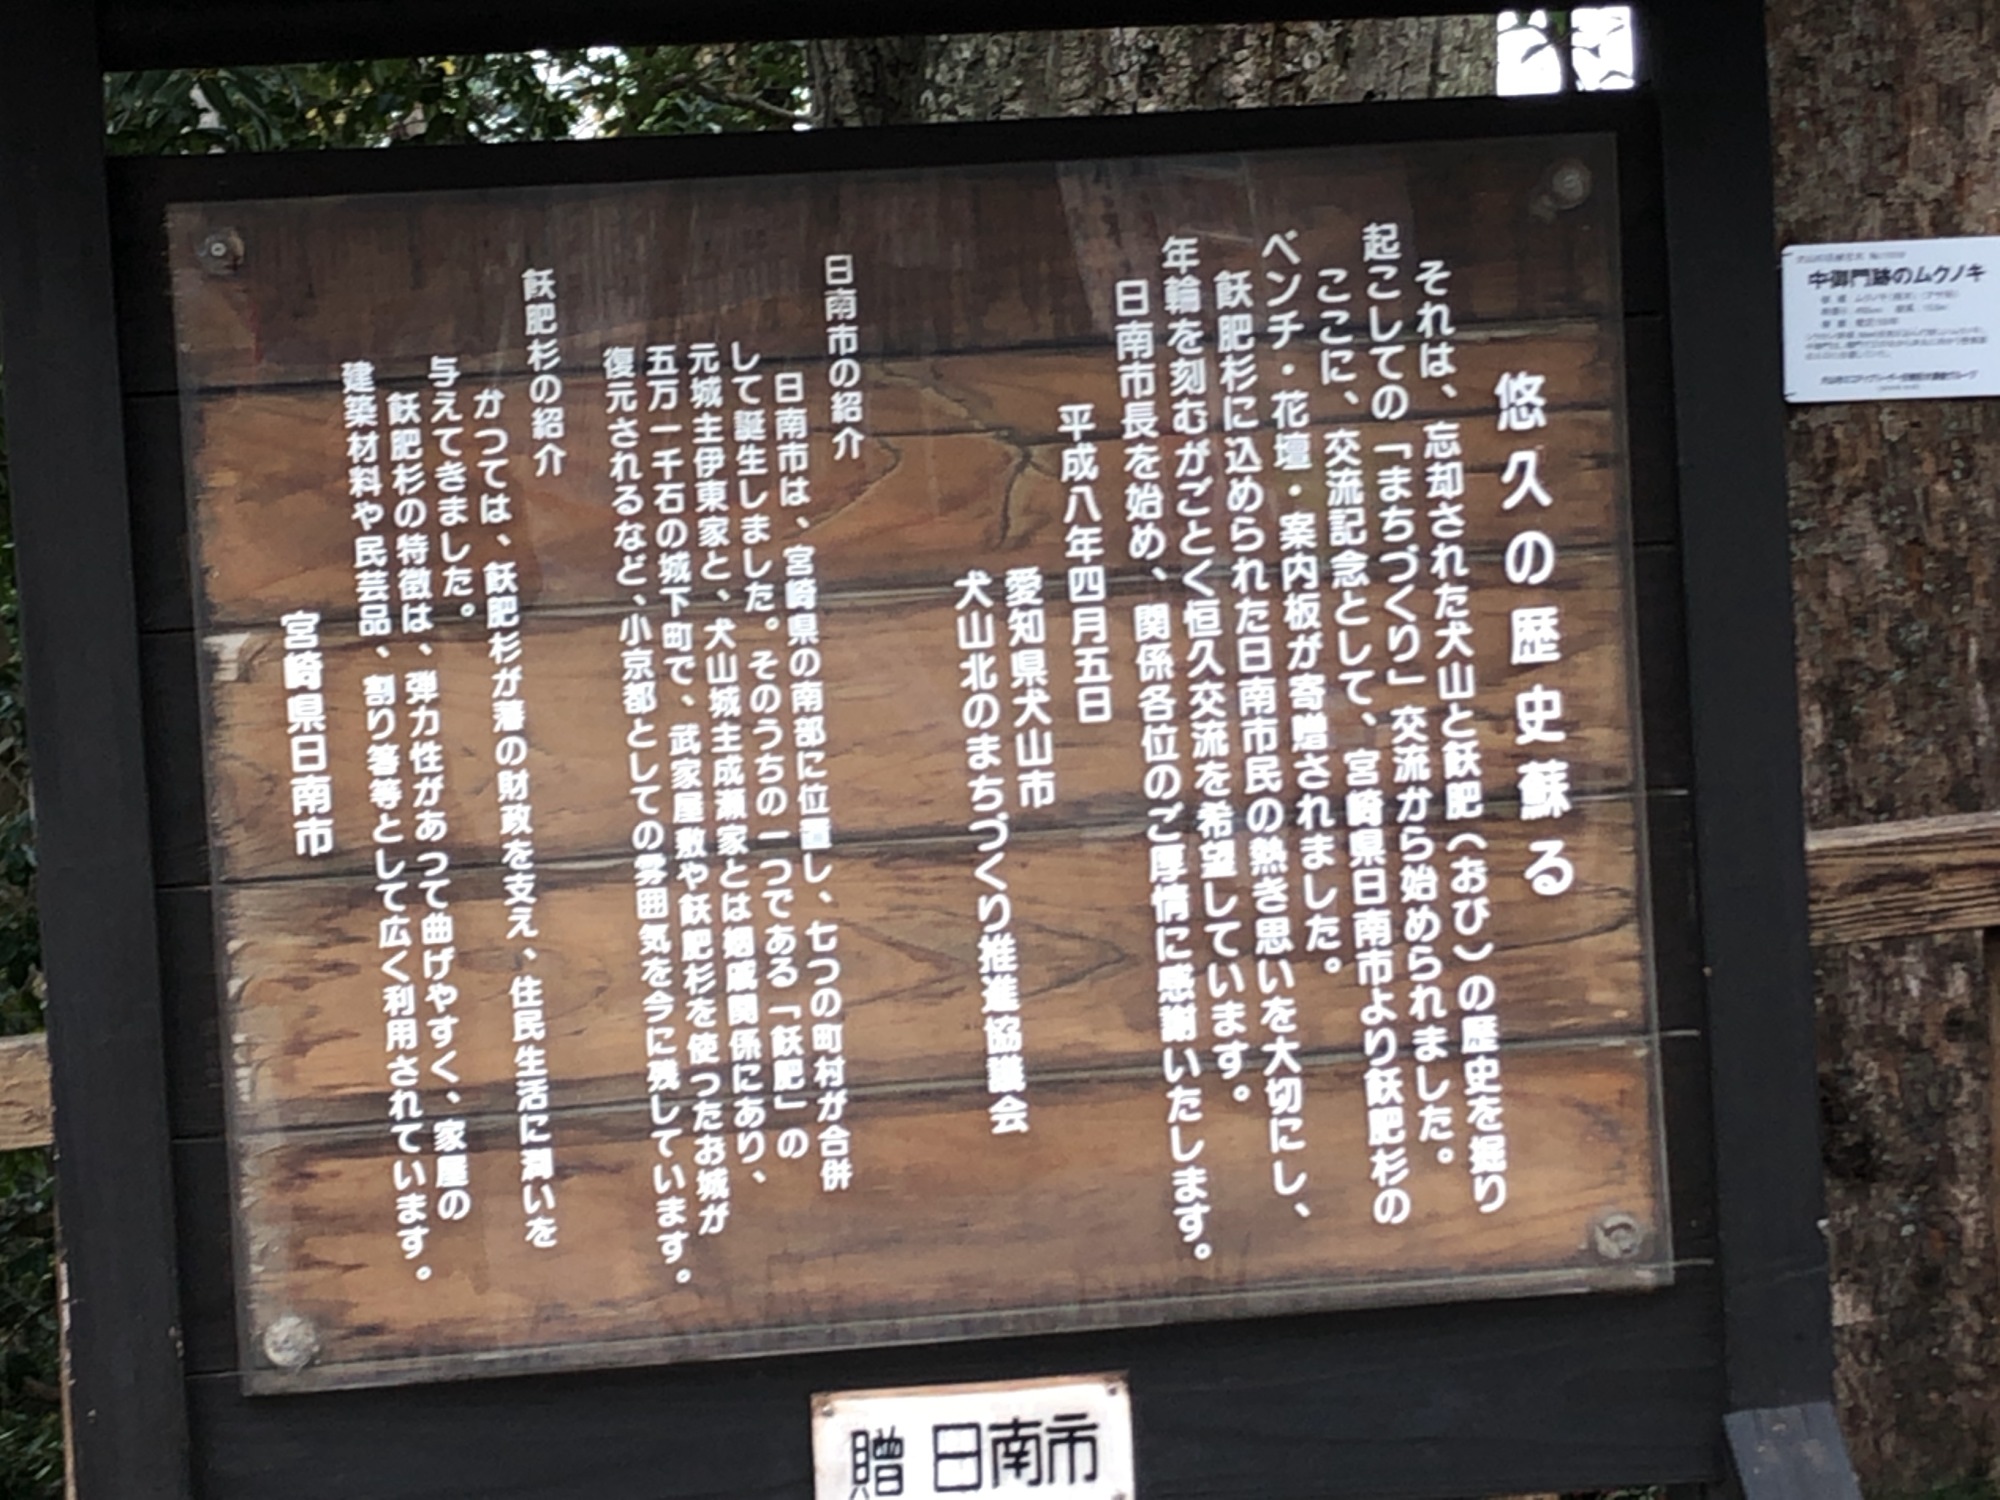 悠久の歴史蘇る
それは、忘却された犬山と飫肥(おび)の歴史を掘り
起こしての「まちづくり」交流から始められました。
ここに、交流記念として、宮崎県日南市より飫肥杉の
ベンチ・花壇・案内板が寄贈されました。
飫肥杉に込められた日南市民の熱き思いを大切にし、
年輪を刻むがごとく恒久交流を希望しています。
日南市長を始め、関係各位のご厚情に感謝いたします。
平成八年四月五日
愛知県犬山市
犬山北のまちづくり推進協議会
日南市の紹介
日南市は、宮崎県の南部に位置し、七つの町村が合併
して誕生しました。そのうちの一つである「飫肥」の
元城主伊東家と、犬山城主成瀬家とは姻戚関係にあり、
五万一千石の城下町で、武家屋敷や飫肥杉を使ったお城が
復元されるなど、小京都としての雰囲気を今に残しています。
飫肥杉の紹介
かつては、飫肥杉が藩の財政を支え、住民生活に潤いを
与えてきました。
飫肥杉の特徴は、弾力性があって曲げやすく、家屋の
建築材料や民芸品、割り箸等として広く利用されています。
宮崎県日南市
贈 日南市
中御門跡のムクノキ